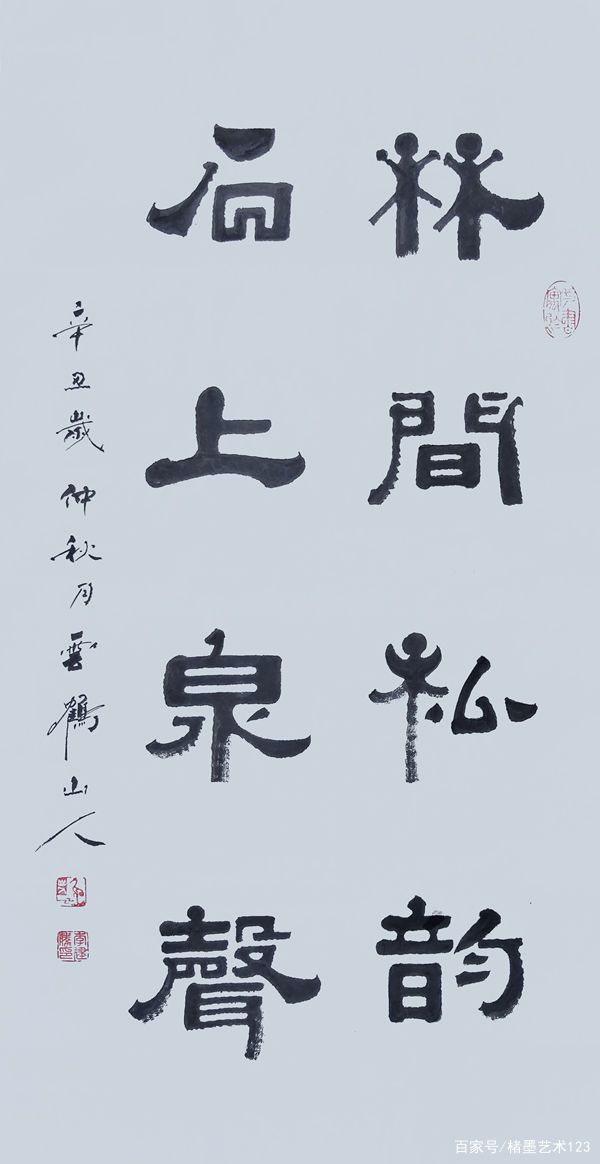 林間松韵
石上泉聲
辛丑歲仲秋月雲鶴山人
百家号/楮墨艺术123